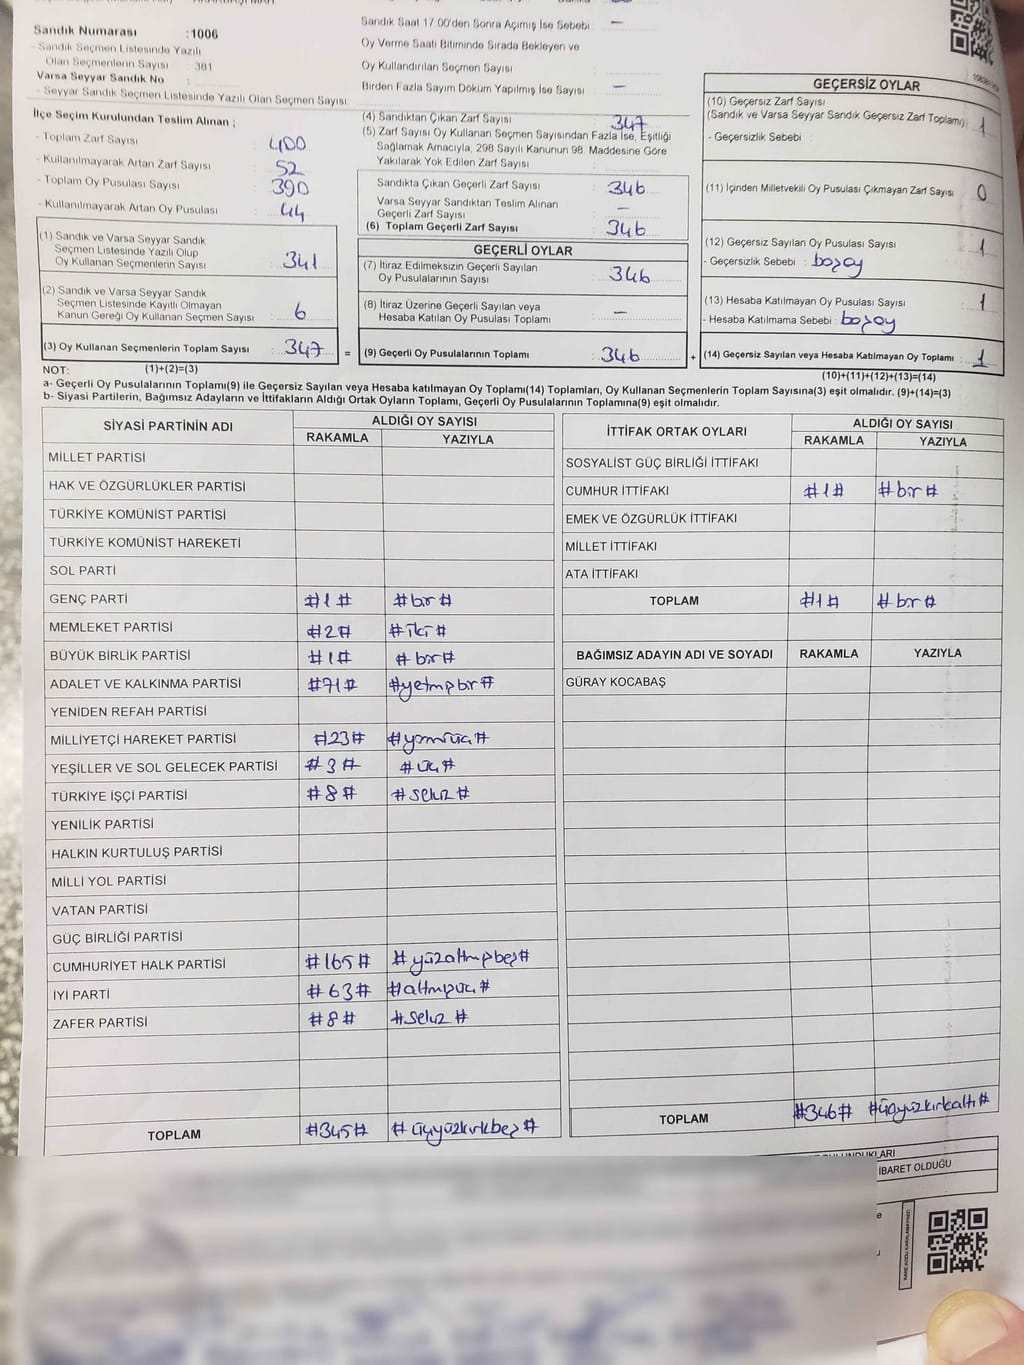 Sandık Numarası :1006
- Sandık Seçmen Listesinde Yazılı
Olan Seçmenlerin Sayısı : 381
Varsa Seyyar Sandık No :
- Seyyar Sandık Seçmen Listesinde Yazılı Olan Seçmen Sayısı
İlçe Seçim Kurulundan Teslim Alınan ;
- Toplam Zarf Sayısı : 400
- Kullanılmayarak Artan Zarf Sayısı : 52
- Toplam Oy Pusulası Sayısı : 390
- Kullanılmayarak Artan Oy Pusulası : 44
(1) Sandık ve Varsa Seyyar Sandık
Seçmen Listesinde Yazılı Olup
Oy Kullanan Seçmenlerin Sayısı : 341
(2) Sandık ve Varsa Seyyar Sandık
Seçmen Listesinde Kayıtlı Olmayan
Kanun Gereği Oy Kullanan Seçmen Sayısı : 6
(3) Oy Kullanan Seçmenlerin Toplam Sayısı : 347 =
Sandık Saat 17:00'den Sonra Açımış İse Sebebi : —
Oy Verme Saati Bitiminde Sırada Bekleyen ve
Oy Kullandırılan Seçmen Sayısı :
Birden Fazla Sayım Döküm Yapılmış İse Sayısı : —
(4) Sandıktan Çıkan Zarf Sayısı : 347
(5) Zarf Sayısı Oy Kullanan Seçmen Sayısından Fazla İse, Eşitliği
Sağlamak Amacıyla, 298 Sayılı Kanunun 98. Maddesine Göre
Yakılarak Yok Edilen Zarf Sayısı :
Sandıkta Çıkan Geçerli Zarf Sayısı : 346
Varsa Seyyar Sandıktan Teslim Alınan
Geçerli Zarf Sayısı : —
(6) Toplam Geçerli Zarf Sayısı : 346
GEÇERLİ OYLAR
(7) İtiraz Edilmeksizin Geçerli Sayılan
Oy Pusulalarının Sayısı : 346
(8) İtiraz Üzerine Geçerli Sayılan veya
Hesaba Katılan Oy Pusulası Toplamı : —
(9) Geçerli Oy Pusulalarının Toplamı : 346 +
GEÇERSİZ OYLAR
(10) Geçersiz Zarf Sayısı
(Sandık ve Varsa Seyyar Sandık Geçersiz Zarf Toplamı) : 1
- Geçersizlik Sebebi :
(11) İçinden Milletvekili Oy Pusulası Çıkmayan Zarf Sayısı : 0
(12) Geçersiz Sayılan Oy Pusulası Sayısı : 1
- Geçersizlik Sebebi : boşoy
(13) Hesaba Katılmayan Oy Pusulası Sayısı : 1
- Hesaba Katılmama Sebebi : boşoy
(14) Geçersiz Sayılan veya Hesaba Katılmayan Oy Toplamı : 1
NOT: (1)+(2)=(3) (10)+(11)+(12)+(13)=(14)
a- Geçerli Oy Pusulalarının Toplamı(9) ile Geçersiz Sayılan veya Hesaba katılmayan Oy Toplamı(14) Toplamları, Oy Kullanan Seçmenlerin Toplam Sayısına(3) eşit olmalıdır. (9)+(14)=(3)
b- Siyasi Partilerin, Bağımsız Adayların ve İttifakların Aldığı Ortak Oyların Toplamı, Geçerli Oy Pusulalarının Toplamına(9) eşit olmalıdır.
SİYASİ PARTİNİN ADI ALDIĞI OY SAYISI
RAKAMLA YAZIYLA
MİLLET PARTİSİ
HAK VE ÖZGÜRLÜKLER PARTİSİ
TÜRKİYE KOMÜNİST PARTİSİ
TÜRKİYE KOMÜNİST HAREKETİ
SOL PARTİ
GENÇ PARTİ #1# #bir#
MEMLEKET PARTİSİ #2# #iki#
BÜYÜK BİRLİK PARTİSİ #1# #bir#
ADALET VE KALKINMA PARTİSİ #71# #yetmişbir#
YENİDEN REFAH PARTİSİ
MİLLİYETÇİ HAREKET PARTİSİ #23# #yirmiüç#
YEŞİLLER VE SOL GELECEK PARTİSİ #3# #üç#
TÜRKİYE İŞÇİ PARTİSİ #8# #sekiz#
YENİLİK PARTİSİ
HALKIN KURTULUŞ PARTİSİ
MİLLİ YOL PARTİSİ
VATAN PARTİSİ
GÜÇ BİRLİĞİ PARTİSİ
CUMHURİYET HALK PARTİSİ #165# #yüzaltmışbeş#
İYİ PARTİ #63# #altmışüç#
ZAFER PARTİSİ #8# #sekiz#
TOPLAM #345# #üçyüzkırkbeş#
İTTİFAK ORTAK OYLARI ALDIĞI OY SAYISI
RAKAMLA YAZIYLA
SOSYALİST GÜÇ BİRLİĞİ İTTİFAKI
CUMHUR İTTİFAKI #1# #bir#
EMEK VE ÖZGÜRLÜK İTTİFAKI
MİLLET İTTİFAKI
ATA İTTİFAKI
TOPLAM #1# #bir#
BAĞIMSIZ ADAYIN ADI VE SOYADI RAKAMLA YAZIYLA
GÜRAY KOCABAŞ
TOPLAM #346# #üçyüzkırkaltı#
İBARET OLDUĞU